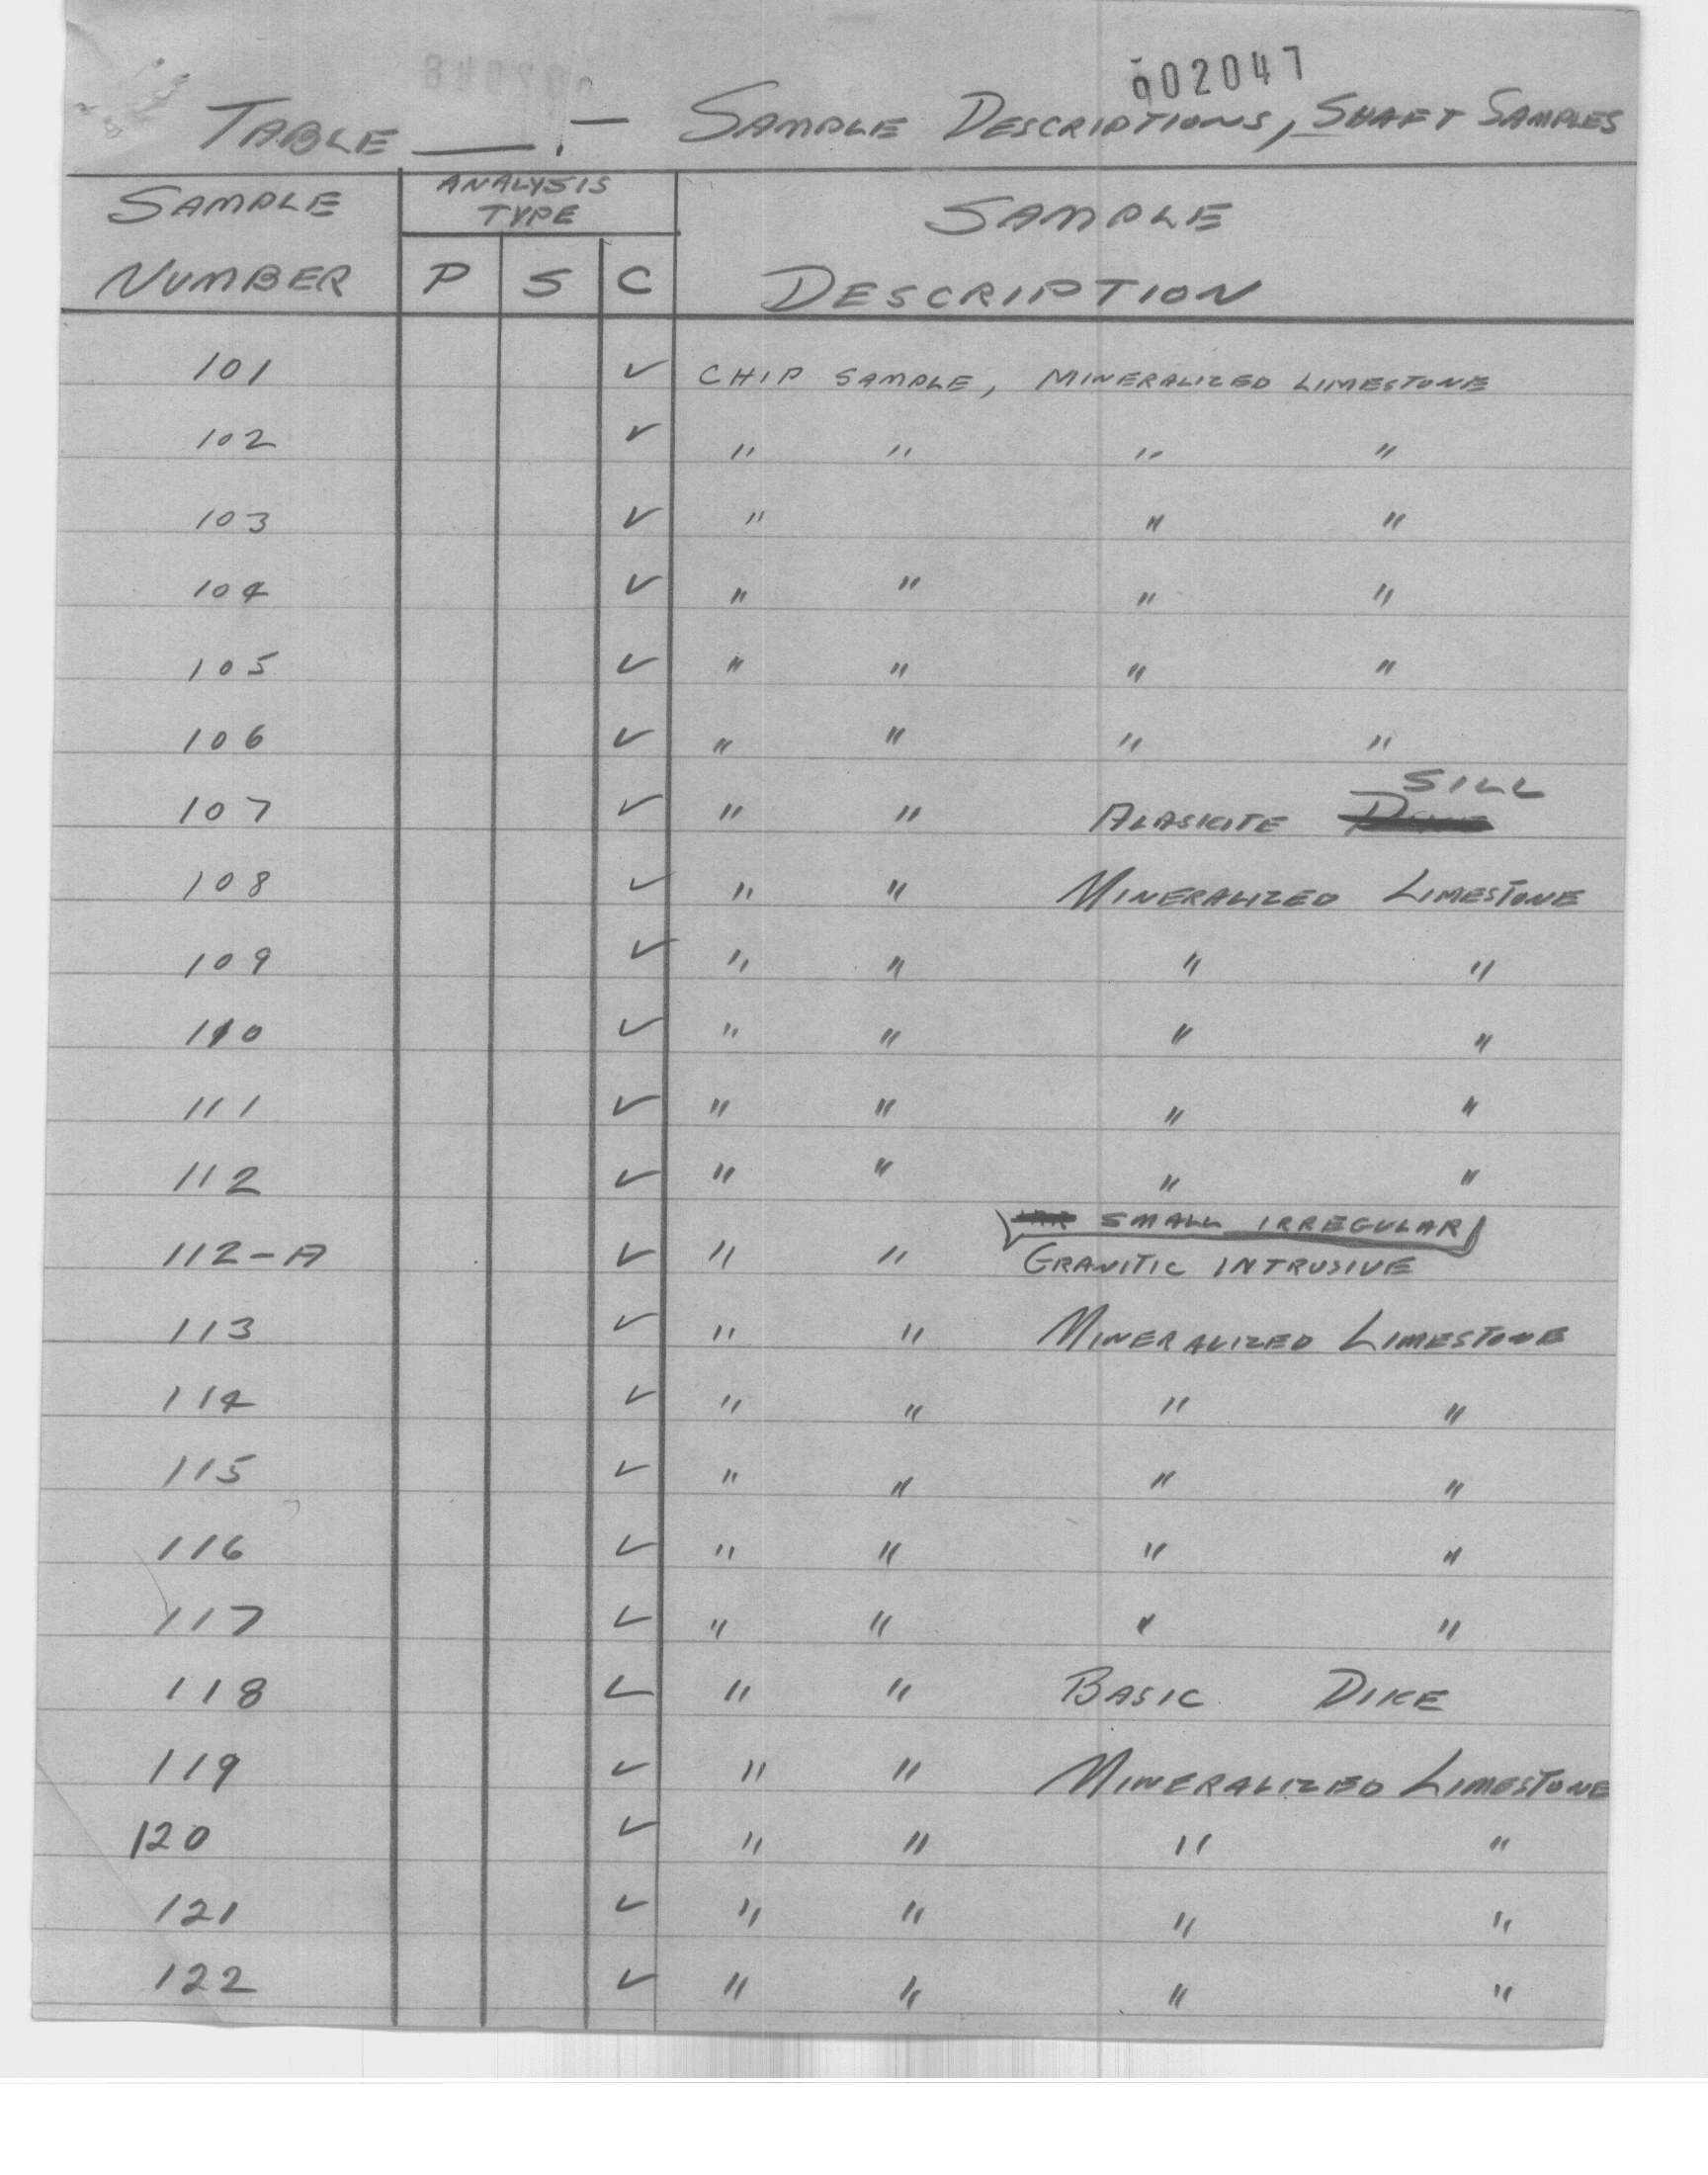 002047
TABLE ___.— SAMPLE DESCRIPTIONS, SHAFT SAMPLES
SAMPLE NUMBER ANALYSIS TYPE SAMPLE DESCRIPTION
P S C
101 ✓ CHIP SAMPLE, MINERALIZED LIMESTONE
102 ✓ " " " "
103 ✓ " " "
104 ✓ " " " "
105 ✓ " " " "
106 ✓ " " " "
SILL
107 ✓ " " ALASKITE
108 ✓ " " MINERALIZED LIMESTONE
109 ✓ " " " "
110 ✓ " " " "
111 ✓ " " " "
112 ✓ " " " "
SMALL IRREGULAR
112-A ✓ " " GRANITIC INTRUSIVE
113 ✓ " " MINERALIZED LIMESTONE
114 ✓ " " " "
115 ✓ " " " "
116 ✓ " " " "
117 ✓ " " " "
118 ✓ " " BASIC DIKE
119 ✓ " " MINERALIZED LIMESTONE
120 ✓ " " " "
121 ✓ " " " "
122 ✓ " " " "